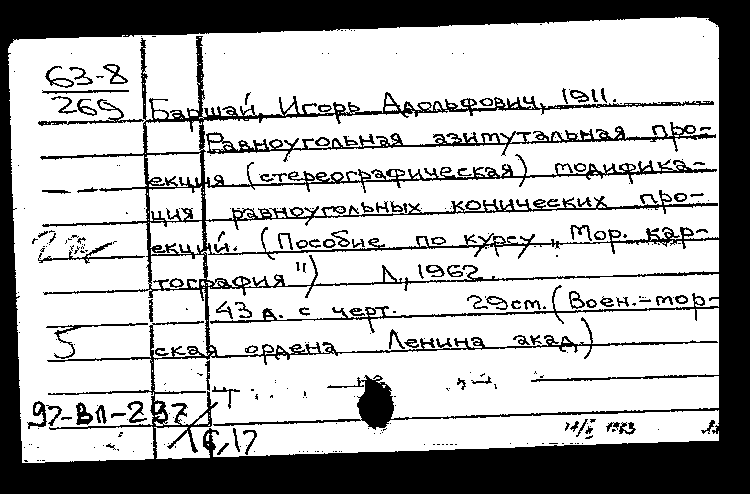 63-8
269
Баршай, Игорь Адольфович, 1911.
Равноугольная азимутальная про-
екция (стереографическая) модифика-
ция равноугольных конических про-
екций. (Пособие по курсу „Мор. кар-
тография") Л., 1962.
43 л. с черт. 29 см. (Воен.-мор-
ская ордена Ленина акад.)
5
97-ВЛ-297/
/16,17
1963